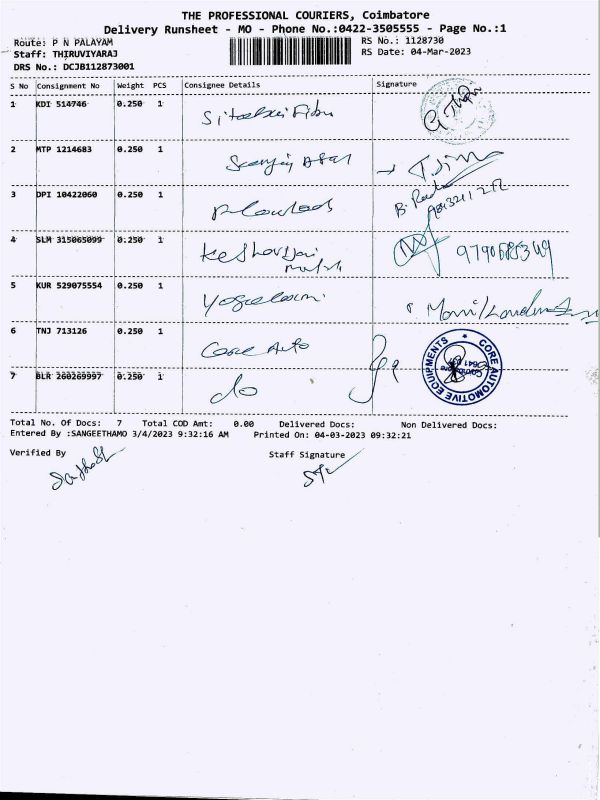 THE PROFESSIONAL COURIERS, Coimbatore
Delivery Runsheet - MO - Phone No.:0422-3505555 - Page No.:1
Route: P N PALAYAM RS No.: 1128730
Staff: THIRUVIYARAJ RS Date: 04-Mar-2023
DRS No.: DCJB112873001
S No Consignment No Weight PCS Consignee Details Signature
1 KDI 514746 0.250 1
2 MTP 1214683 0.250 1
3 DPI 10422060 0.250 1
4 SLM 315065099 0.250 1
5 KUR 529075554 0.250 1
6 TNJ 713126 0.250 1 Core Auto
7 BLR 260269997 0.250 1 do
CORE AUTOMOTIVE EQUIPMENTS
Total No. Of Docs: 7 Total COD Amt: 0.00 Delivered Docs: Non Delivered Docs:
Entered By :SANGEETHAMO 3/4/2023 9:32:16 AM Printed On: 04-03-2023 09:32:21
Verified By Staff Signature